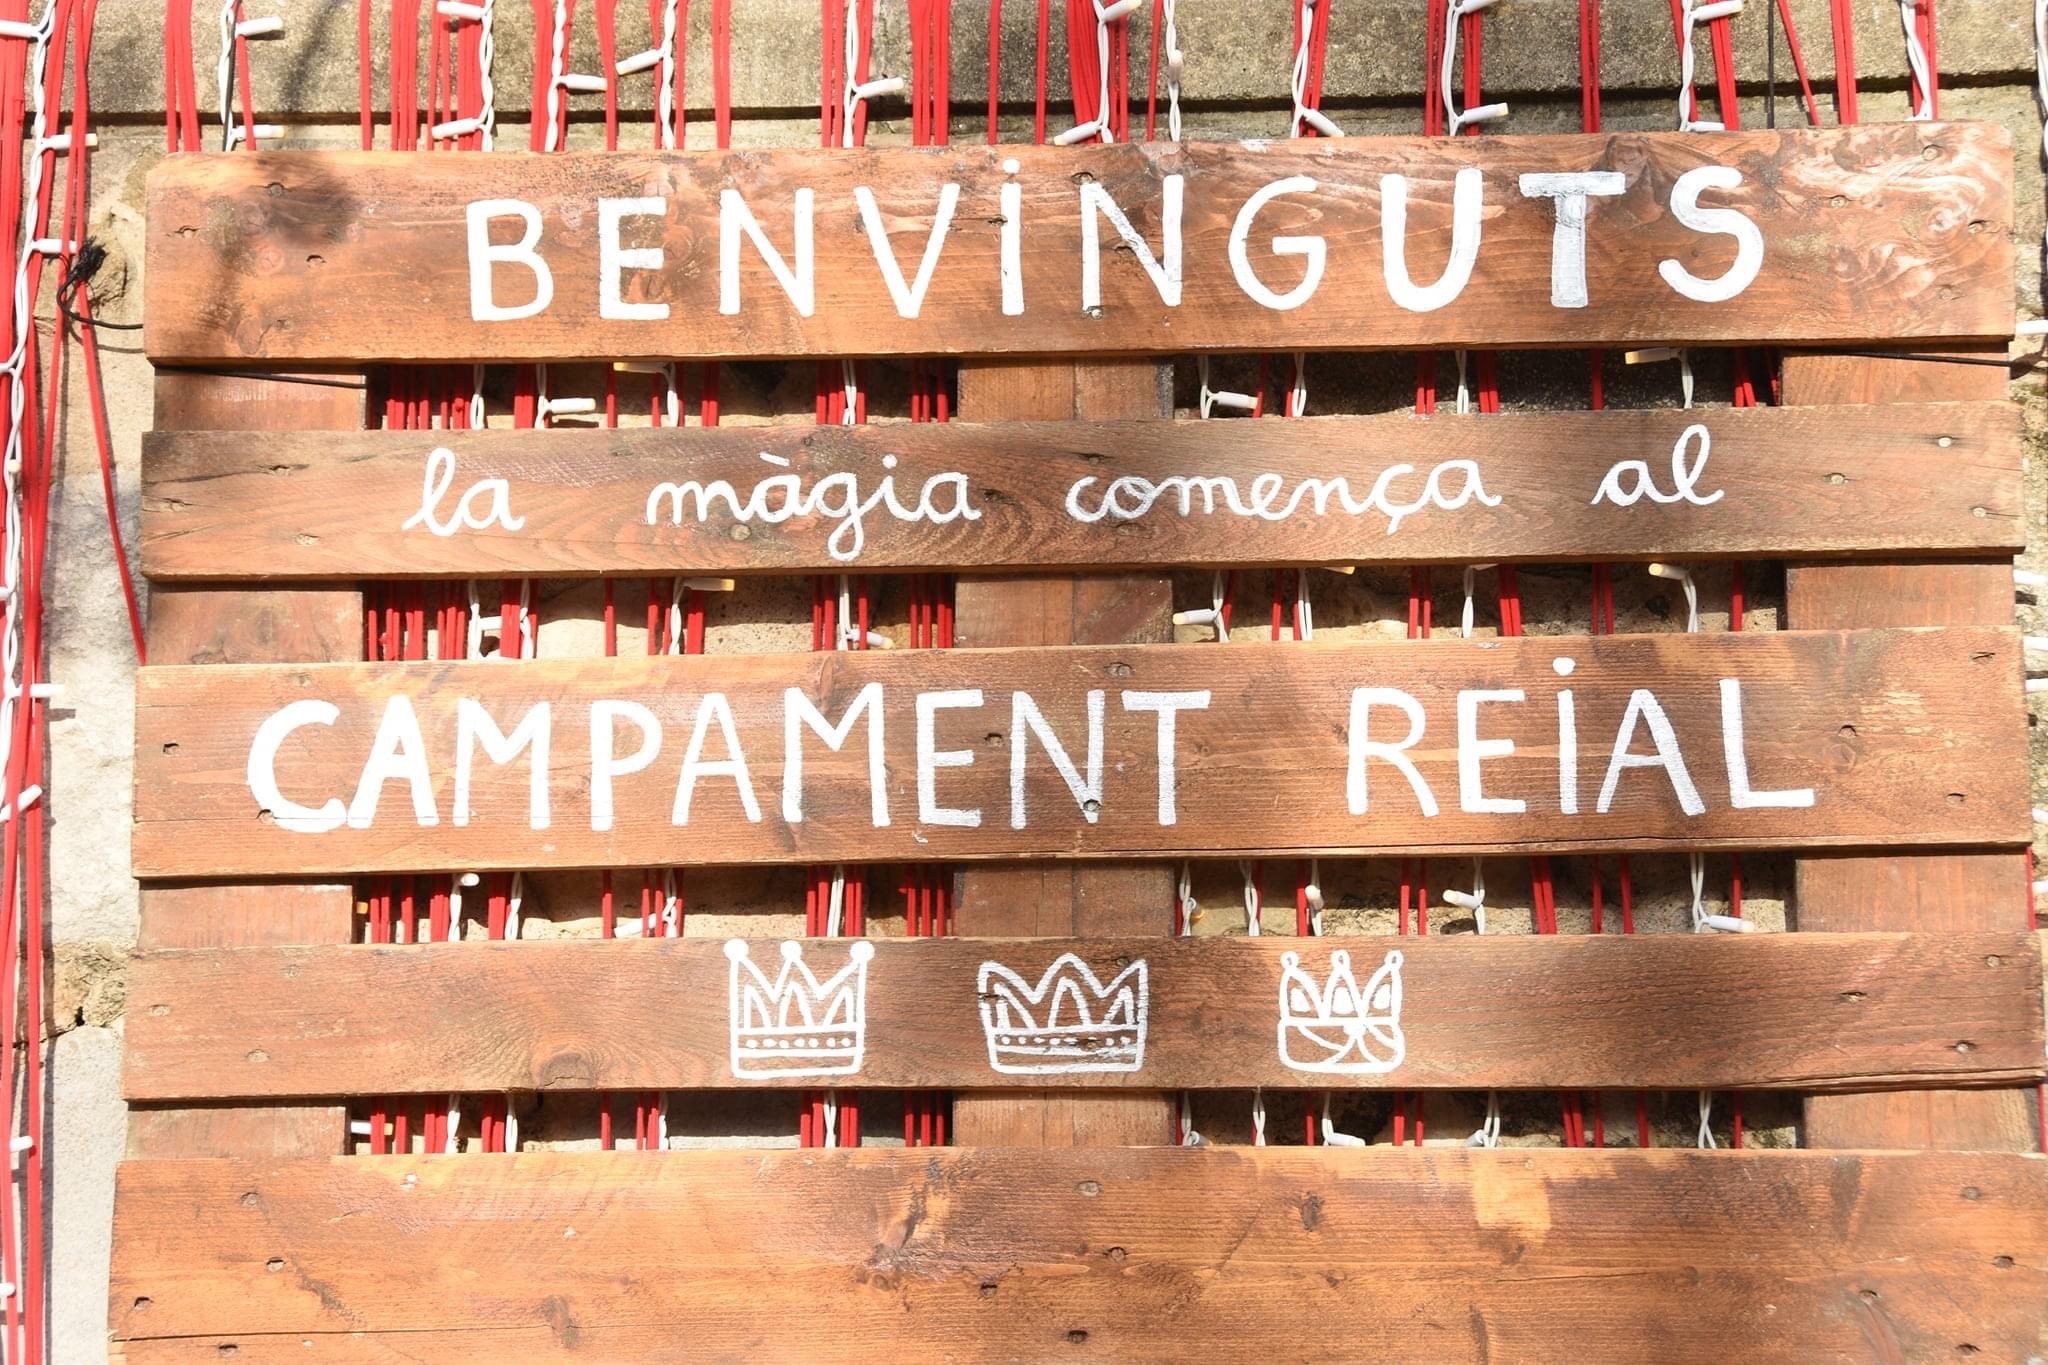 BENVINGUTS
la màgia comença al
CAMPAMENT REIAL